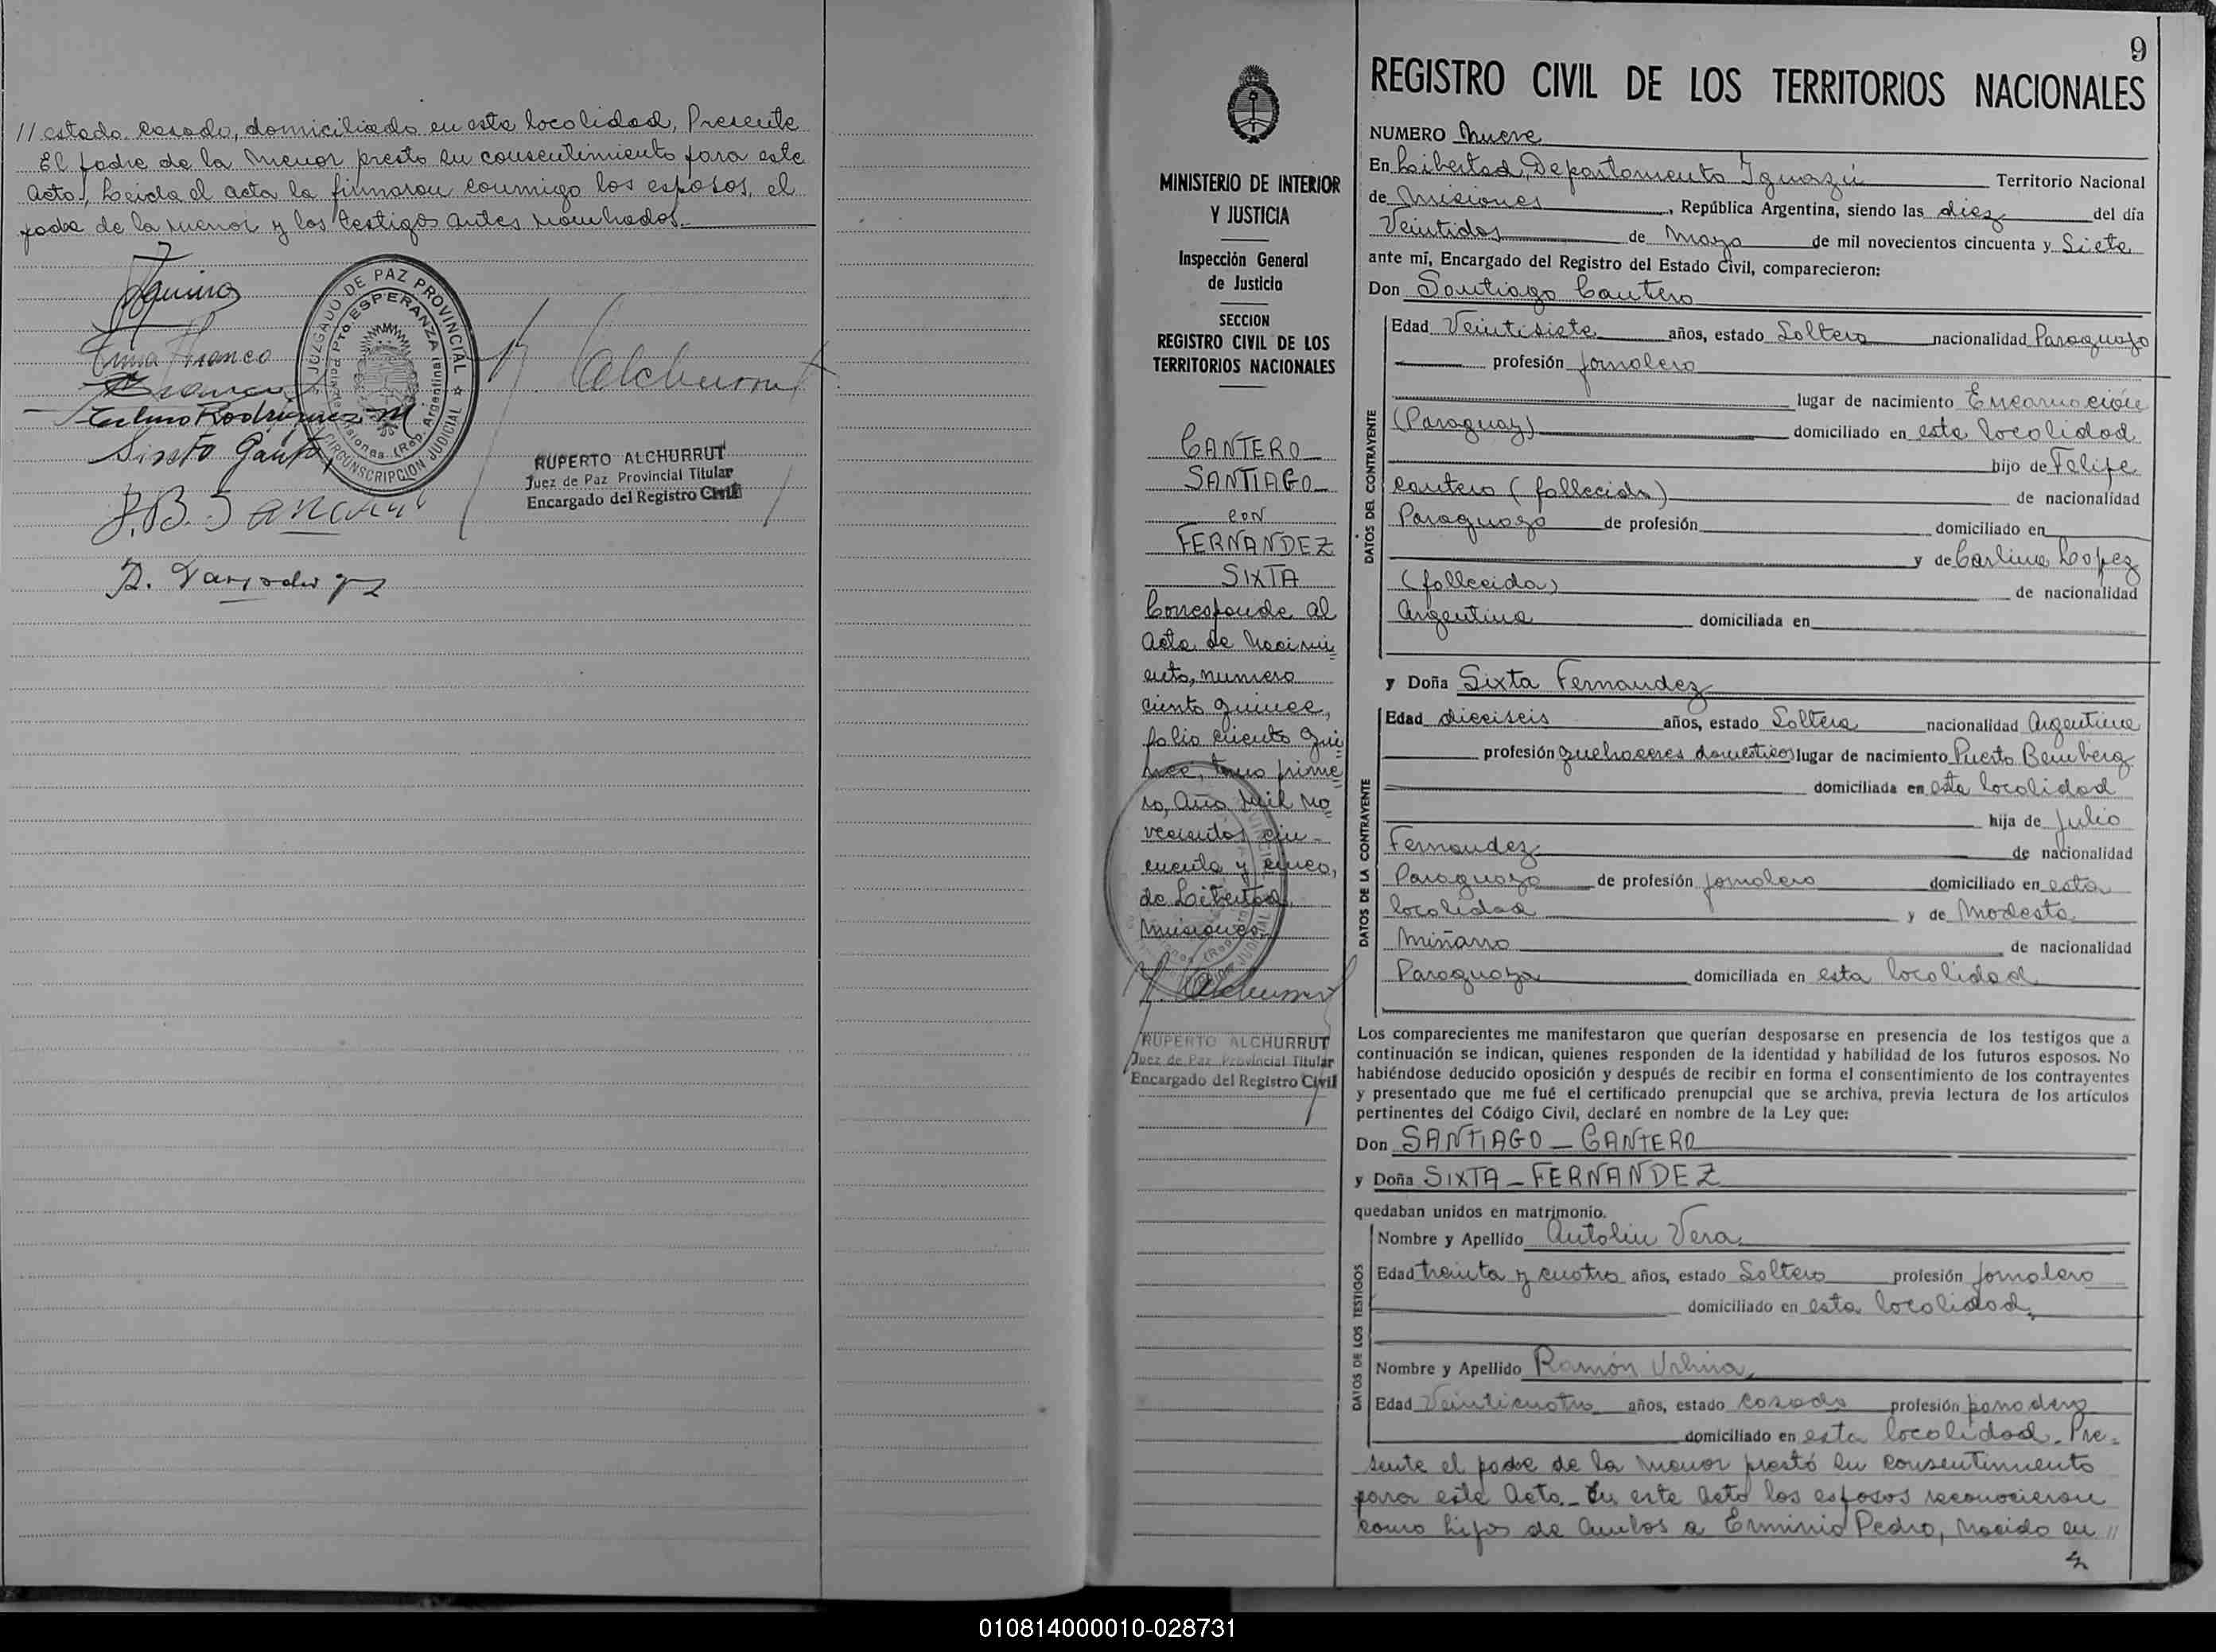 // estado casado, domiciliado en esta localidad, Presente
El padre de la menor presto su consentimiento para este
acto, Leida el acta la firmaron conmigo los esposos, el
padre de la menor y los testigos antes nombrados.
Franco
Rodriguez
Sixto
JUZGADO DE PAZ PROVINCIAL
Pto. ESPERANZA
Misiones (Rep. Argentina)
CIRCUNSCRIPCION JUDICIAL
Alchurrut
RUPERTO ALCHURRUT
Juez de Paz Provincial Titular
Encargado del Registro Civil
MINISTERIO DE INTERIOR
Y JUSTICIA
Inspección General
de Justicia
SECCION
REGISTRO CIVIL DE LOS
TERRITORIOS NACIONALES
CANTERO
SANTIAGO
CON
FERNANDEZ
SIXTA
Corresponde al
acta de Nacimi
ento, numero
ciento quince,
folio ciento qui
nce, tomo prime
ro, Año mil no
vecientos cin-
cuenta y cinco,
de Libertad,
Misiones,
Alchurrut
RUPERTO ALCHURRUT
Juez de Paz Provincial Titular
Encargado del Registro Civil
9
REGISTRO CIVIL DE LOS TERRITORIOS NACIONALES
NUMERO Nueve
En Libertad, Departamento Iguazú Territorio Nacional
de Misiones, República Argentina, siendo las diez del día
Veintidos de Mayo de mil novecientos cincuenta y Siete
ante mí, Encargado del Registro del Estado Civil, comparecieron:
Don Santiago Cantero
DATOS DEL CONTRAYENTE
Edad Veintisiete años, estado Soltero nacionalidad Paraguayo
profesión jornalero
lugar de nacimiento Encarnación
(Paraguay) domiciliado en esta localidad
hijo de Felipe
Cantero (fallecido) de nacionalidad
Paraguayo de profesión domiciliado en
y de Carlina Lopez
(fallecida) de nacionalidad
Argentina domiciliada en
y Doña Sixta Fernandez
DATOS DE LA CONTRAYENTE
Edad dieciseis años, estado Soltera nacionalidad Argentina
profesión quehaceres domesticos lugar de nacimiento Puerto Bemberg
domiciliada en esta localidad
hija de Julio
Fernandez de nacionalidad
Paraguayo de profesión jornalero domiciliado en esta
localidad y de Modesta
Miñarro de nacionalidad
Paraguaya domiciliada en esta localidad
Los comparecientes me manifestaron que querían desposarse en presencia de los testigos que a
continuación se indican, quienes responden de la identidad y habilidad de los futuros esposos. No
habiéndose deducido oposición y después de recibir en forma el consentimiento de los contrayentes
y presentado que me fué el certificado prenupcial que se archiva, previa lectura de los artículos
pertinentes del Código Civil, declaré en nombre de la Ley que:
Don SANTIAGO – CANTERO
y Doña SIXTA – FERNANDEZ
quedaban unidos en matrimonio.
DATOS DE LOS TESTIGOS
Nombre y Apellido Antolin Vera
Edad treinta y cuatro años, estado Soltero profesión jornalero
domiciliado en esta localidad.
Nombre y Apellido Ramón Urbina,
Edad Veinticuatro años, estado casado profesión panadero
domiciliado en esta localidad. Pre-
sente el padre de la menor prestó su consentimiento
para este Acto.- En este Acto los esposos reconocieron
como hijos de Ambos a Erminio Pedro, Nacido en //
010814000010-028731